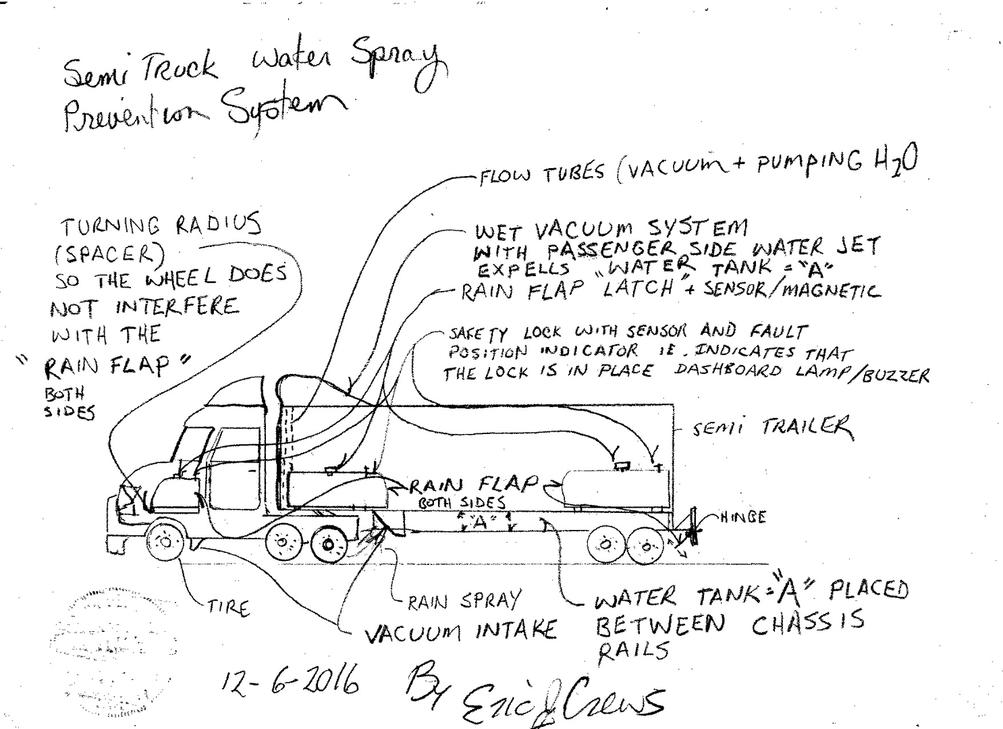 Semi Truck Water Spray
Prevention System
FLOW TUBES (VACUUM + PUMPING H2O
TURNING RADIUS
(SPACER)
SO THE WHEEL DOES
NOT INTERFERE
WITH THE
"RAIN FLAP"
BOTH
SIDES
WET VACUUM SYSTEM
WITH PASSENGER SIDE WATER JET
EXPELLS "WATER TANK = "A"
RAIN FLAP LATCH" + SENSOR/MAGNETIC
SAFETY LOCK WITH SENSOR AND FAULT
POSITION INDICATOR IE. INDICATES THAT
THE LOCK IS IN PLACE DASHBOARD LAMP/BUZZER
SEMI TRAILER
RAIN FLAP
BOTH SIDES
"A"
HINGE
TIRE
RAIN SPRAY
VACUUM INTAKE
WATER TANK = "A" PLACED
BETWEEN CHASSIS
RAILS
12-6-2016 By Eric J Crews